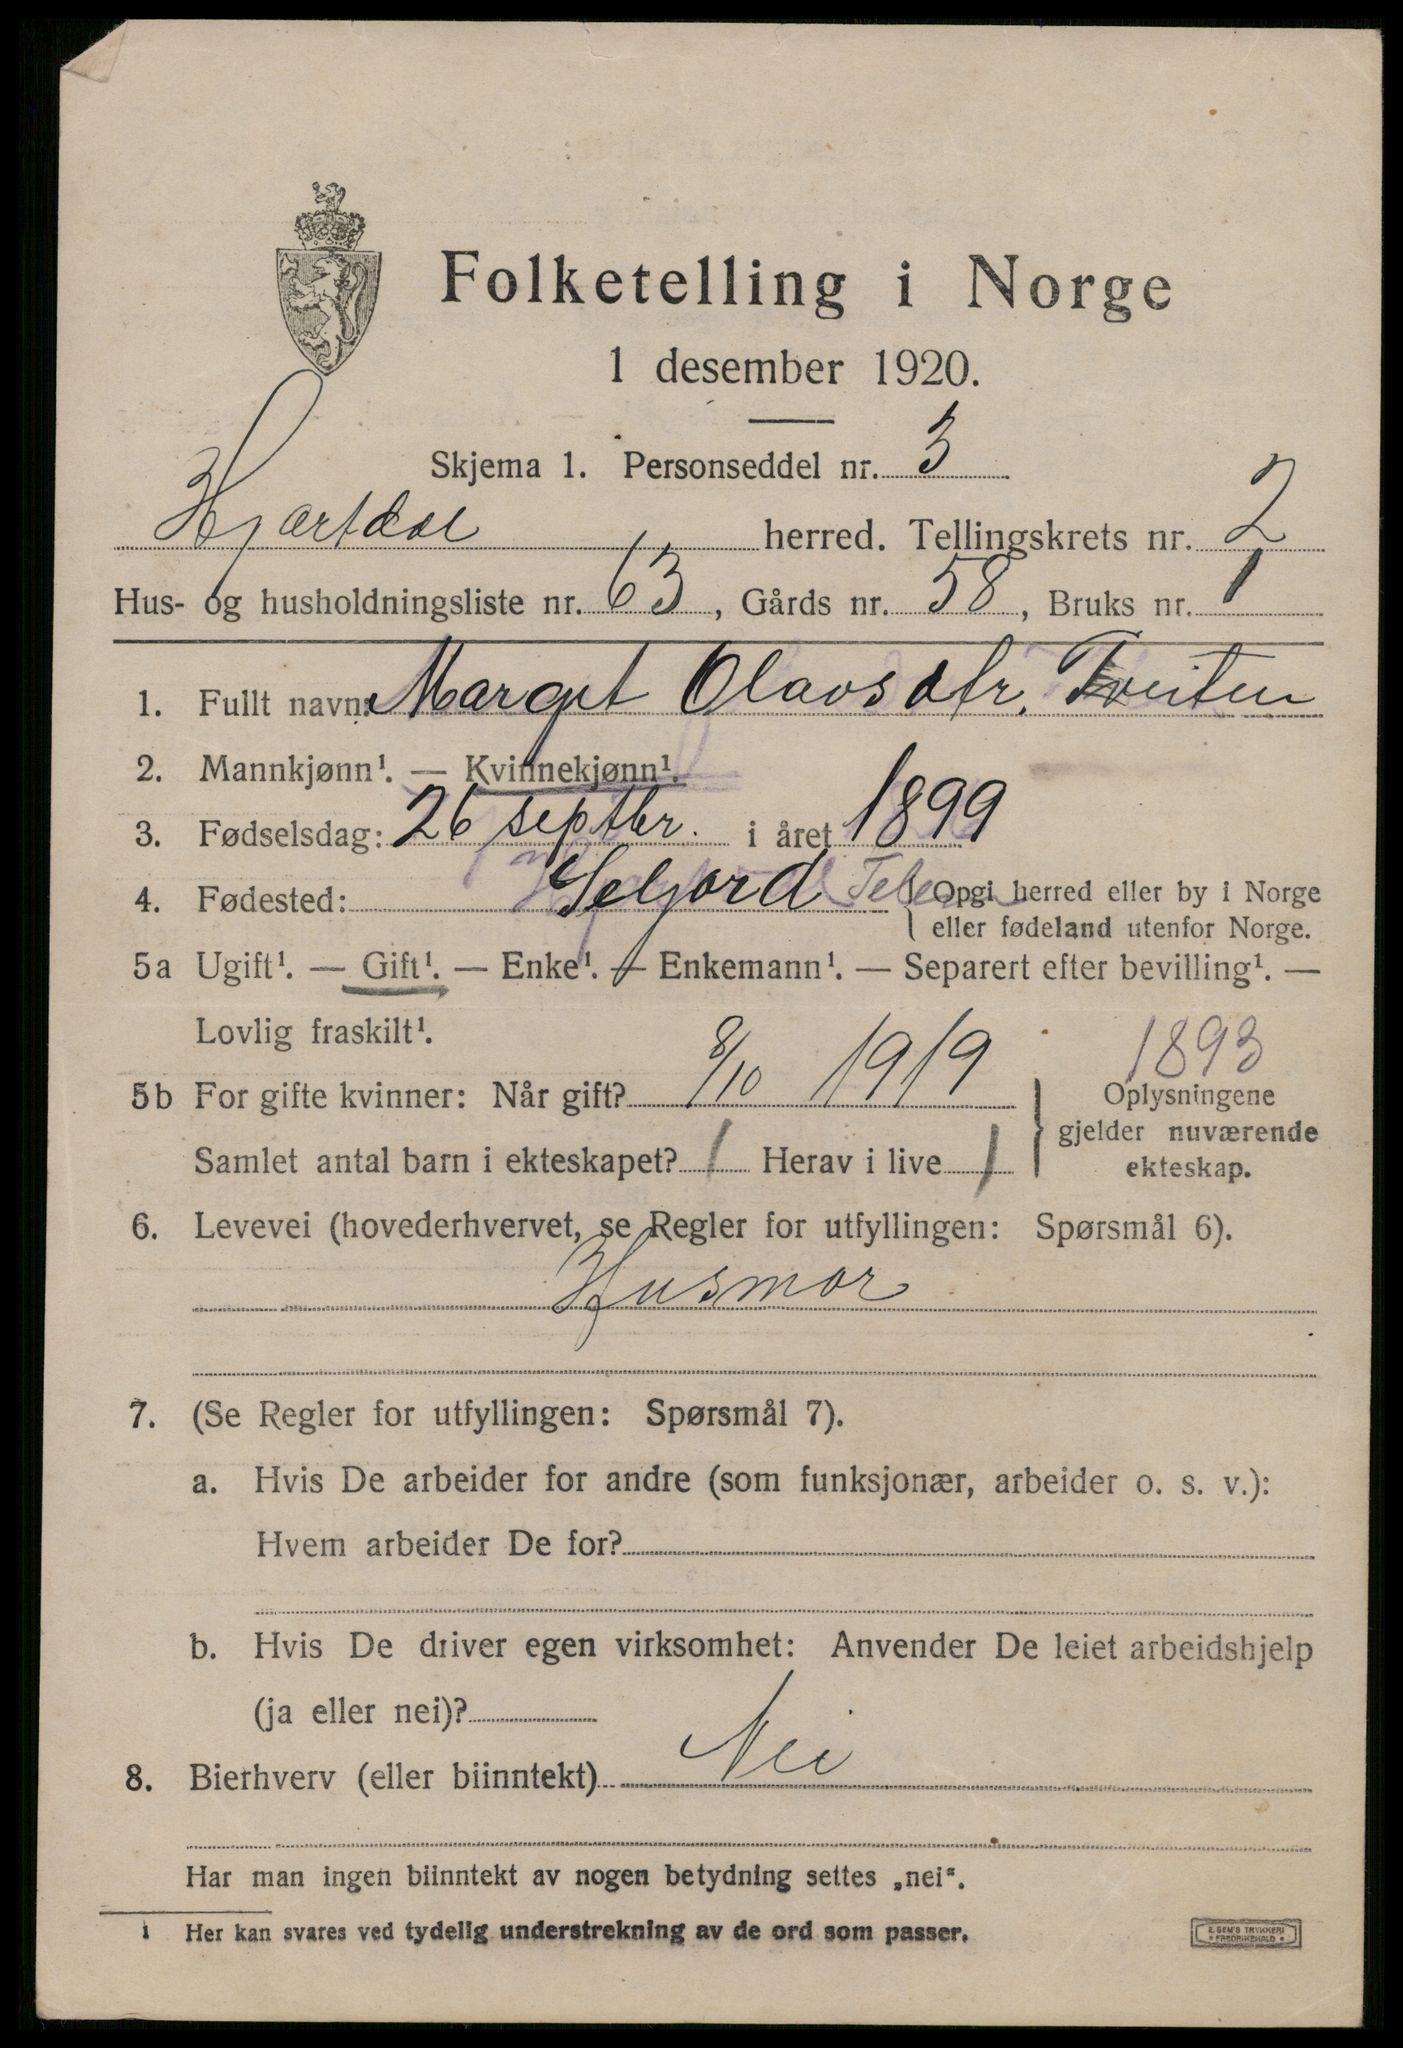 Folketelling i Norge
1 desember 1920.
Skjema 1. Personseddel nr. 3
Hjartdal herred. Tellingskrets nr. 2
Hus- og husholdningsliste nr. 63, Gårds nr. 58, Bruks nr. 1
1. Fullt navn: Margit Olavsdtr. Tveiten
2. Mannkjønn¹. — Kvinnekjønn¹.
3. Fødselsdag: 26 septbr. i året 1899
4. Fødested: Seljord Telem { Opgi herred eller by i Norge
eller fødeland utenfor Norge.
5a Ugift¹. — Gift¹. — Enke¹. — Enkemann¹. — Separert efter bevilling¹. —
Lovlig fraskilt¹.
1893
5b For gifte kvinner: Når gift? 8/10 1919 } Oplysningene
gjelder nuværende
Samlet antal barn i ekteskapet? 1 Herav i live 1 ekteskap.
6. Levevei (hovederhvervet, se Regler for utfyllingen: Spørsmål 6).
Husmor
7. (Se Regler for utfyllingen: Spørsmål 7).
a. Hvis De arbeider for andre (som funksjonær, arbeider o. s. v.):
Hvem arbeider De for?
b. Hvis De driver egen virksomhet: Anvender De leiet arbeidshjelp
(ja eller nei)?
8. Bierhverv (eller biinntekt) Nei
Har man ingen biinntekt av nogen betydning settes „nei“.
1 Her kan svares ved tydelig understrekning av de ord som passer.
E. SEM'S TRYKKERI
• FREDRIKSHALD •